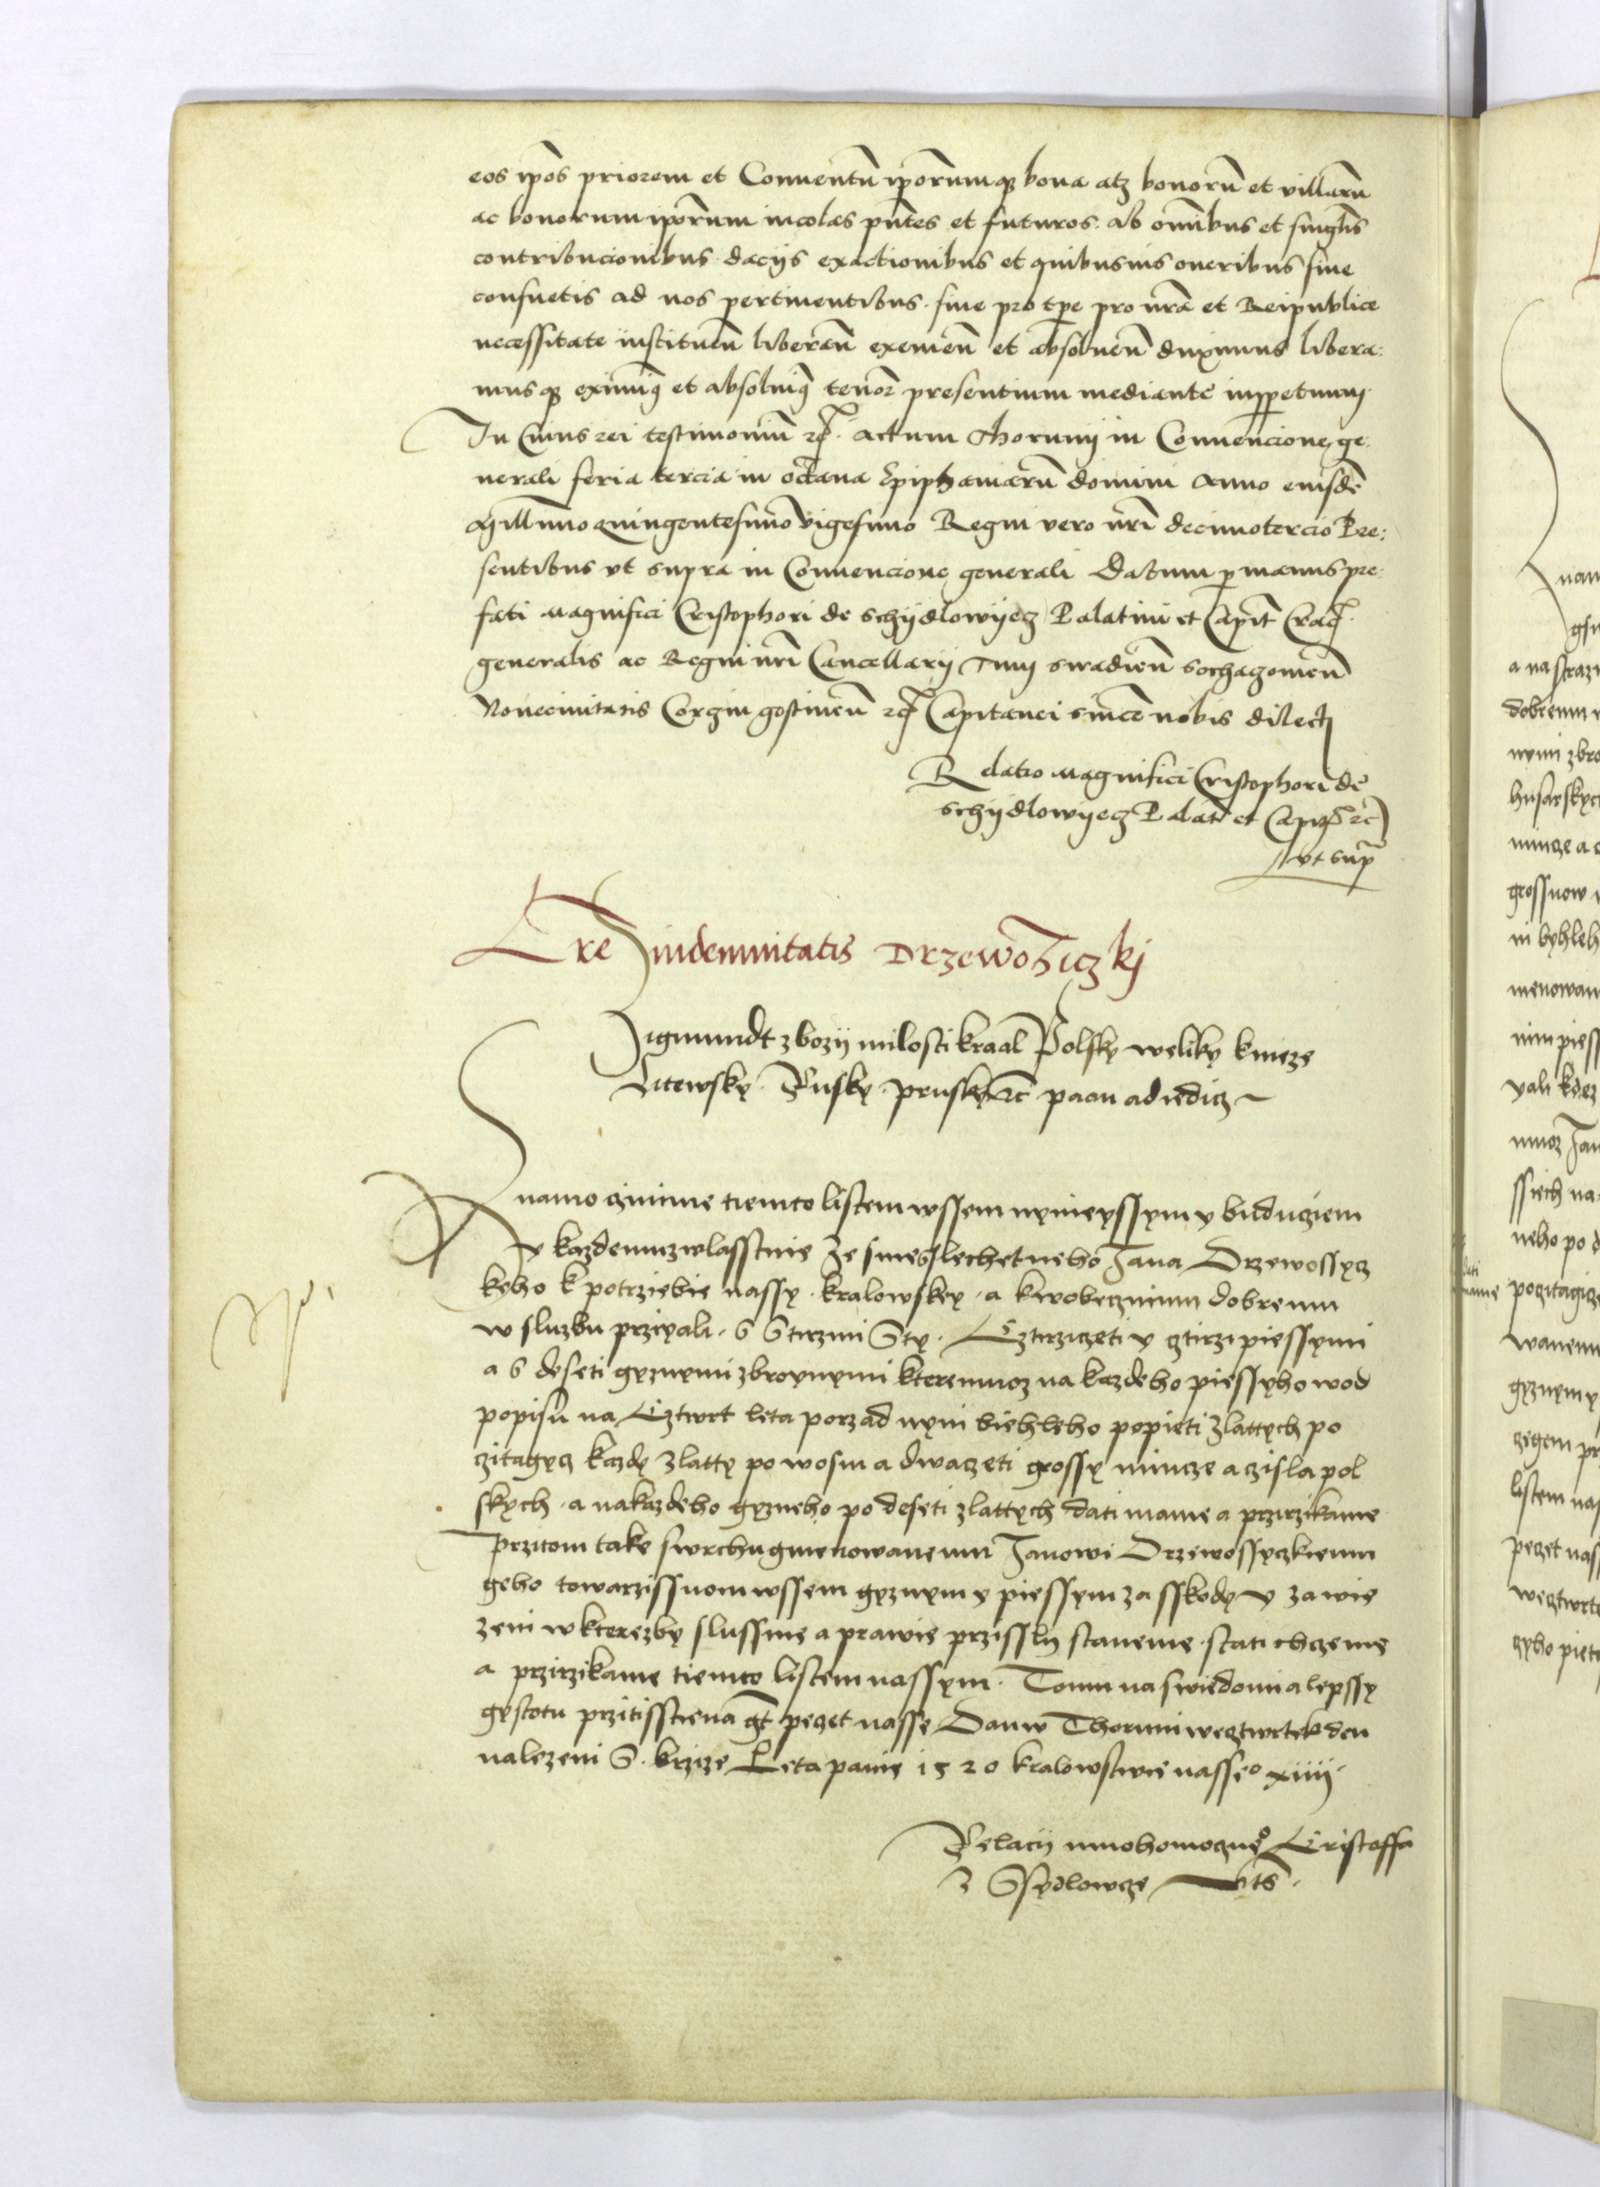 eos ip̄os priorem et Conuentū ip̄orumqꝫ bona atqꝫ bonorū et villarū
ac bonorum ip̄orum incolas pn̄tes et futuros. ab om̄ibus et singl̄is
contribucionibus dacijs exactionibus et quibusuis oneribus siue
consuetis ad nos pertinentibus. siue pro tpe pro nr̄a et Reipublice
necessitate instituen̄ liberan̄ eximen̄ et absoluen̄ duximus libera:
musqꝫ eximimꝰ et absoluimꝰ tenor̄ presentium mediante inp̱petuum.
In Cuius rei testimoniū ꝛc̄. Actum Thorunij in Conuencione ge:
nerali feria tercia in octaua Epiphaniarū domini Anno eiusdē
Mill̄imo Quingentesimo vigesimo Regni vero nr̄i decimotercio Pre:
sentibus vt supra in Conuencione generali Datum p̱ manus pre:
fati Magnifici Cristophori de Schijdlowijecz Palatini et Capit̄ Crac̄.
generalis ac Regni nr̄i Cancellarij Tum Siradien̄ Sochaczouien̄
Nouecivitatis Corzin gostinen̄ ꝛc̄ Capitanei sincē nobis dilecti
Relatio Magnifici Cristophori de
Schijdlowijecz Palat̄ et Capit̄ ꝛc̄
vt supr̄
Lr̄e indemnitatis Drzewossiczkj
Zigmundt z bozij milosti kraal Polsky weliky knieze
Litewsky. Rusky. prusky ꝛc̄ paan a diedicz
Znamo czinime tiemto listem wssem nynieyssym y buduziem
y kazdemu zwlasstnie Ze sme Slechetneho Jana Drzewossycz
keho k potrziebie nassy. kralowskey. a k wobecznimu dobremu
w sluzbu przieyali. s Sstirzmi Sty. Cztirziczeti y cztirzi piessymi
a s deseti gyznymi zbroynymi kteremuoz na kazdeho piessyho wod
popisu na Cztwrt leta porzad nym biehleho po pieti Zlattych po
czitagycz kazdy Zlatty po wosm a dwaczeti grossy mincze a czisla pol
skych. a na kazdeho gyzneho po deseti zlattych dati mame a przirzikame
Przitom take swrchugmenowanemu Janowi Drzewossyczkiemu
geho towarzissuom wssem gyznym y piessym za sskody y za wie
zeni w kterezby slussnie a prawie przissly staneme. stati chczeme
a przirzikame tiemto listem nassym. Tomu na swiedomi a lepssy
gystotu przitisstiena gt̄ peczet nasse Dan w Thoruni w cztwrtek den
nalezeni S. krzize Leta panie 1520 kralowstwie nasseᵒ xiiij.
Relacij mnohomoczneᵒ Cristoffa
Z Ssydlowcze